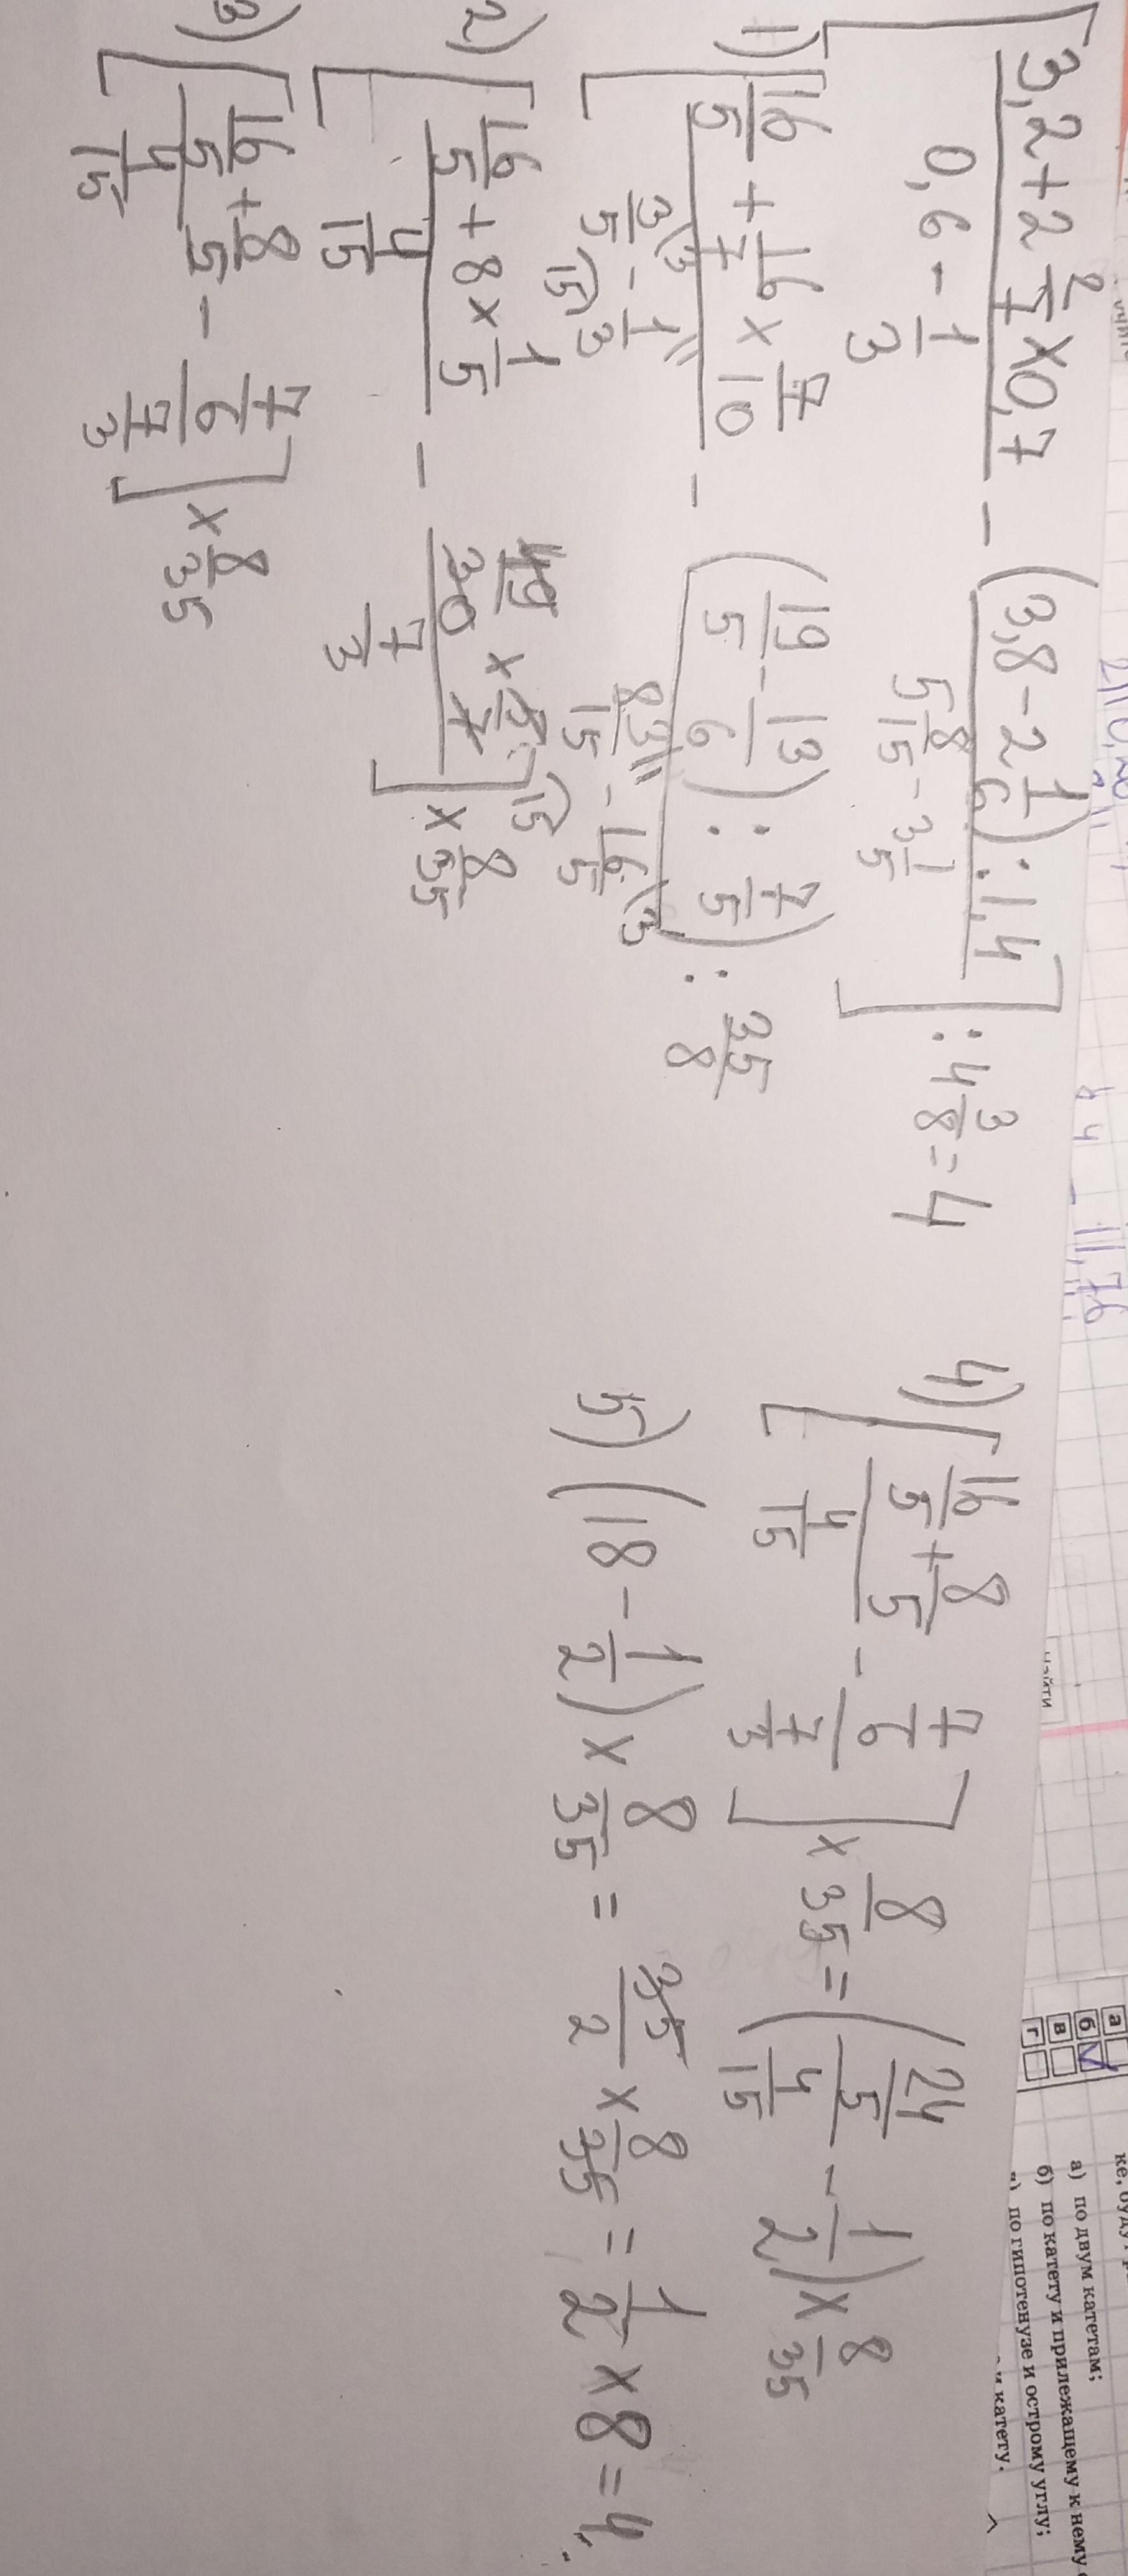 [(3,2+2 2/7×0,7)/(0,6-1/3) - ((3,8-2 1/6):1,4)/(5 8/15-3 1/5)] : 4 3/8 = 4
1) [(16/5 + 16/7 × 7/10)/(3/5\3 - 1/3 (15) - ((19/5 - 13/6) : 7/5)/(83/15 - 16/5\3 (15)) : 35/8
2) [(16/5 + 8 × 1/5)/(4/15) - (49/30 × 5/7)/(7/3)] × 8/35
3) [(16/5 + 8/5)/(4/15) - (7/6)/(7/3)] × 8/35
4) [(16/5 + 8/5)/(4/15) - (7/6)/(7/3)] × 8/35 = ((24/5)/(4/15) - 1/2) × 8/35
5) (18 - 1/2) × 8/35 = 35/2 × 8/35 = 1/2 × 8 = 4.
84 - 11,76
найти
а
б
в
г
а) по двум катетам;
б) по катету и прилежащему к нему
по гипотенузе и острому углу;
и катету.